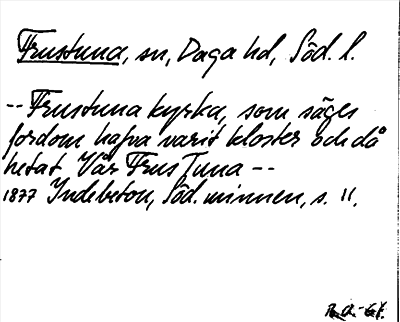 Frustuna, sn, Daga hd, Söd. l.
-- Frustuna kyrka, som säges
fordom hafva varit kloster och då
hetat Vår Frus Tuna --
1877 Indebetou, Söd. minnen, s. 11.